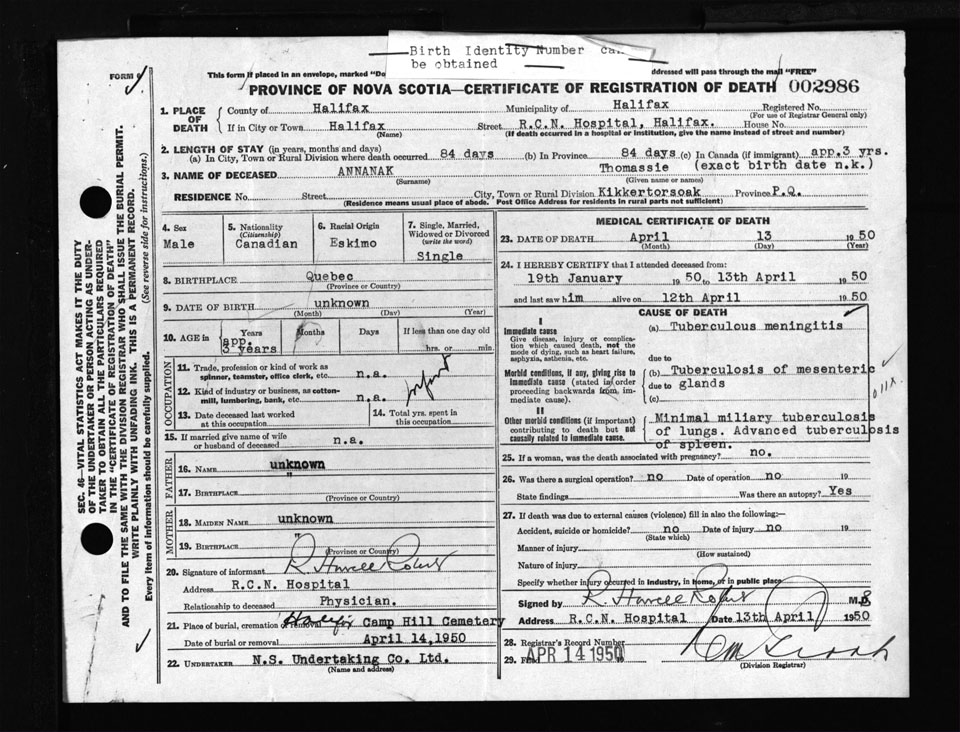 Birth Identity Number can
be obtained
FORM
This form if placed in an envelope, marked "Do
ddressed will pass through the mail "FREE"
PROVINCE OF NOVA SCOTIA—CERTIFICATE OF REGISTRATION OF DEATH 002986
1. PLACE OF DEATH
County of Halifax Municipality of Halifax Registered No.
(For use of Registrar General only)
If in City or Town Halifax Street R.C.N. Hospital, Halifax. House No.
(Name) (If death occurred in a hospital or institution, give the name instead of street and number)
2. LENGTH OF STAY (in years, months and days)
(a) In City, Town or Rural Division where death occurred 84 days (b) In Province 84 days (c) In Canada (if immigrant) app.3 yrs.
3. NAME OF DECEASED ANNANAK Thomassie (exact birth date n.k.)
(Surname) (Given name or names)
RESIDENCE No. Street City, Town or Rural Division Kikkertorsoak Province P.Q.
(Residence means usual place of abode. Post Office Address for residents in rural parts not sufficient)
4. Sex
Male
5. Nationality
(Citizenship)
Canadian
6. Racial Origin
Eskimo
7. Single, Married,
Widowed or Divorced
(write the word)
Single
8. BIRTHPLACE Quebec
(Province or Country)
9. DATE OF BIRTH unknown
(Month) (Day) (Year)
10. AGE in
Years
app.
3 years
Months
Days
If less than one day old
hrs. or min.
OCCUPATION
11. Trade, profession or kind of work as
spinner, teamster, office clerk, etc. n.a.
infant
12. Kind of industry or business, as cotton-
mill, lumbering, bank, etc. n.a.
13. Date deceased last worked
at this occupation
14. Total yrs. spent in
this occupation
15. If married give name of wife
or husband of deceased n.a.
FATHER
16. NAME unknown
17. BIRTHPLACE "
(Province or Country)
MOTHER
18. MAIDEN NAME unknown
19. BIRTHPLACE "
(Province or Country)
20. Signature of informant R. Howell Roberts
Address R.C.N. Hospital
Relationship to deceased Physician.
21. Place of burial, cremation or removal Halifax Camp Hill Cemetery
Date of burial or removal April 14,1950
22. UNDERTAKER N.S. Undertaking Co. Ltd.
(Name and address)
MEDICAL CERTIFICATE OF DEATH
23. DATE OF DEATH April 13 1950
(Month) (Day) (Year)
24. I HEREBY CERTIFY that I attended deceased from:
19th January 1950 to 13th April 1950
and last saw him alive on 12th April 1950
CAUSE OF DEATH
I
Immediate cause
Give disease, injury or complica-
tion which caused death, not the
mode of dying, such as heart failure,
asphyxia, asthenia, etc.
(a) Tuberculous meningitis
due to
Morbid conditions, if any, giving rise to
immediate cause (stated in order
proceeding backwards from im-
mediate cause).
(b) Tuberculosis of mesenteric
due to glands
(c)
II
Other morbid conditions (if important)
contributing to death but not
causally related to immediate cause.
Minimal miliary tuberculosis
of lungs. Advanced tuberculosis
of spleen.
25. If a woman, was the death associated with pregnancy? no.
26. Was there a surgical operation? no Date of operation no 19
State findings Was there an autopsy? Yes
27. If death was due to external causes (violence) fill in also the following:—
Accident, suicide or homicide? no Date of injury no 19
(State which)
Manner of injury
(How sustained)
Nature of injury
Specify whether injury occurred in industry, in home, or in public place
Signed by R. Howell Roberts M.D.
Address R.C.N. Hospital Date 13th April 1950
28. Registrar's Record Number
29. APR 14 1950
(Division Registrar)
SEC. 46—VITAL STATISTICS ACT MAKES IT THE DUTY
OF THE UNDERTAKER OR PERSON ACTING AS UNDER-
TAKER TO OBTAIN ALL THE PARTICULARS REQUIRED
IN THE "CERTIFICATE OF REGISTRATION OF DEATH"
AND TO FILE THE SAME WITH THE DIVISION REGISTRAR WHO SHALL ISSUE THE BURIAL PERMIT.
WRITE PLAINLY WITH UNFADING INK. THIS IS A PERMANENT RECORD.
Every item of information should be carefully supplied. (See reverse side for instructions.)